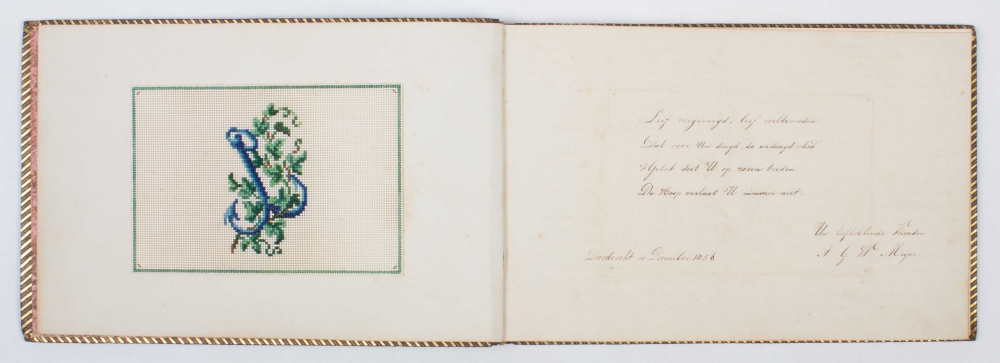 Leef vergenoegd, leef weltevreden
Dat voor Uw deugd, de ondeugd vlied
't Geluk doet U op rozen treden
De Hoop verlaat U nimmer niet.
Uw liefhebbende Vriendin
A G W Meyer
Dordrecht December 1856